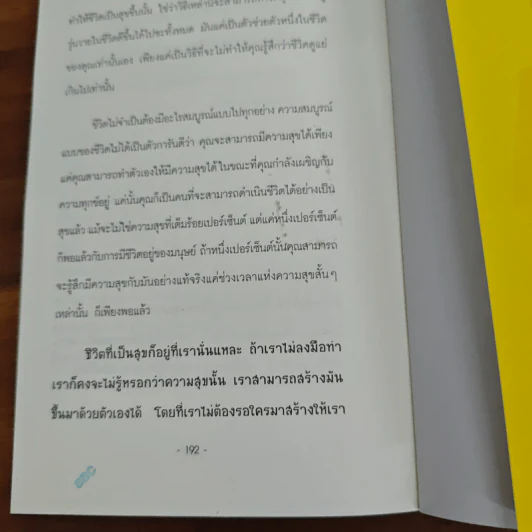 ทำให้ชีวิตเป็นสุขขึ้นนั้น ใช่ว่าวิธีเหล่านี้จะสามารถทำให้
วุ่นวายในชีวิตดีขึ้นได้ไปซะทั้งหมด มันแค่เป็นตัวช่วยตัวหนึ่งในชีวิต
ของคุณเท่านั้นเอง เพียงแค่เป็นวิธีที่จะไม่ทำให้คุณรู้สึกว่าชีวิตดูแย่
เกินไปเท่านั้น
ชีวิตไม่จำเป็นต้องมีอะไรสมบูรณ์แบบไปทุกอย่าง ความสมบูรณ์
แบบของชีวิตไม่ได้เป็นตัวการันตีว่า คุณจะสามารถมีความสุขได้เพียง
แค่คุณสามารถทำตัวเองให้มีความสุขได้ ในขณะที่คุณกำลังเผชิญกับ
ความทุกข์อยู่ แค่นั้นคุณก็เป็นคนที่จะสามารถดำเนินชีวิตได้อย่างเป็น
สุขแล้ว แม้จะไม่ใช่ความสุขที่เต็มร้อยเปอร์เซ็นต์ แต่แค่หนึ่งเปอร์เซ็นต์
ก็พอแล้วกับการมีชีวิตอยู่ของมนุษย์ ถ้าหนึ่งเปอร์เซ็นต์นั้นคุณสามารถ
จะรู้สึกมีความสุขกับมันอย่างแท้จริงแค่ช่วงเวลาแห่งความสุขสั้น ๆ
เหล่านั้น ก็เพียงพอแล้ว
ชีวิตที่เป็นสุขก็อยู่ที่เรานั่นแหละ ถ้าเราไม่ลงมือทำ
เราก็คงจะไม่รู้หรอกว่าความสุขนั้น เราสามารถสร้างมัน
ขึ้นมาด้วยตัวเองได้ โดยที่เราไม่ต้องรอใครมาสร้างให้เรา
- 192 -